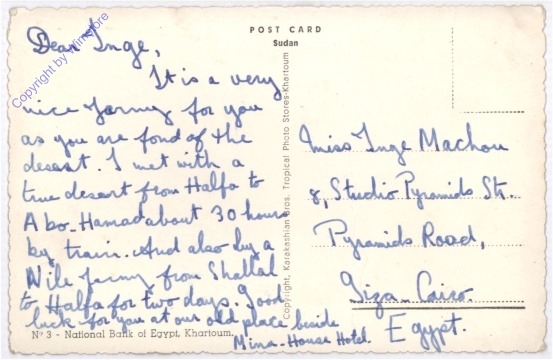 POST CARD
Sudan
Dear Inge,
It is a very
nice Jarny for you
as you are fond of the
desest. I met with a
true desert from Halfa to
Abo_Hamad about 30 hours
by train. And also by a
Nile Jarny from Shallal
to Halfa for two days. Good
luck for you at our old place beside
Mina-House Hotel.
Nº 3 - National Bank of Egypt, Khartoum.
Copyright, Karakashian Bros. Tropical Photo Stores-Khartoum
Miss Inge Machou
8, Studio Pyramids Str.
Pyramids Road,
Giza-Cairo
Egypt.
Copyright by Wimstore